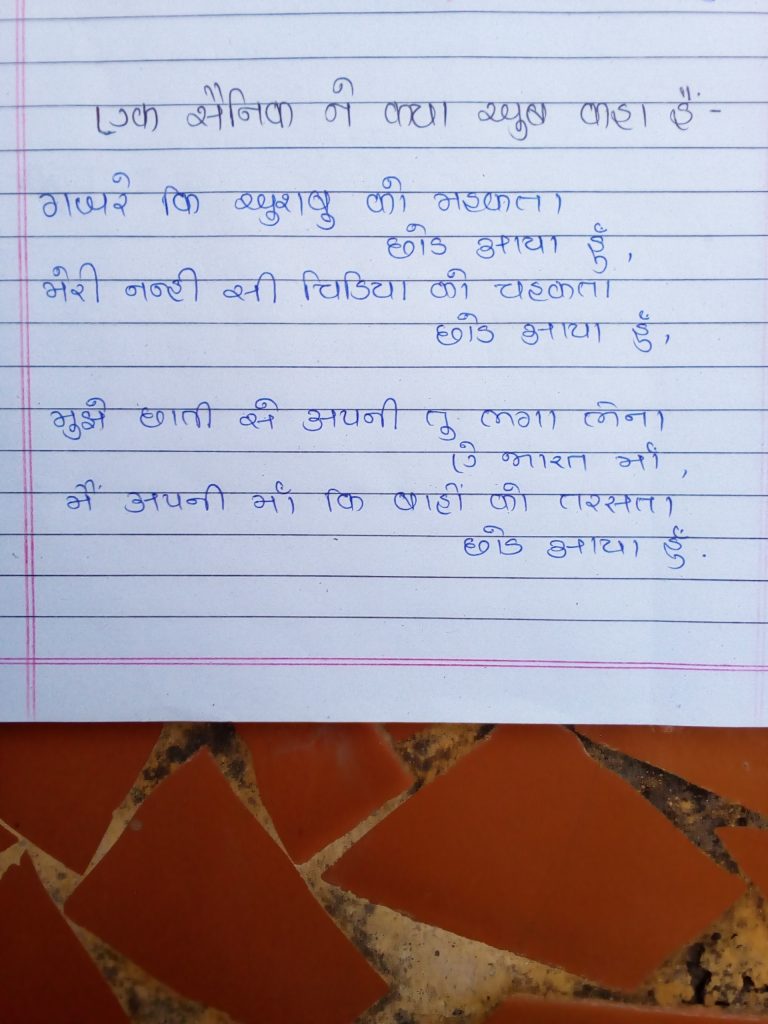 एक सैनिक ने क्या खुब कहा हैं -
गजरे कि खुशबु को महकता
छोड आया हुँ,
मेरी नन्ही सी चिडिया को चहकता
छोड आया हुँ,
मुझे छाती से अपनी तु लगा लेना
ऐ भारत माँ,
मैं अपनी माँ कि बाहों को तरसता
छोड आया हुँ.